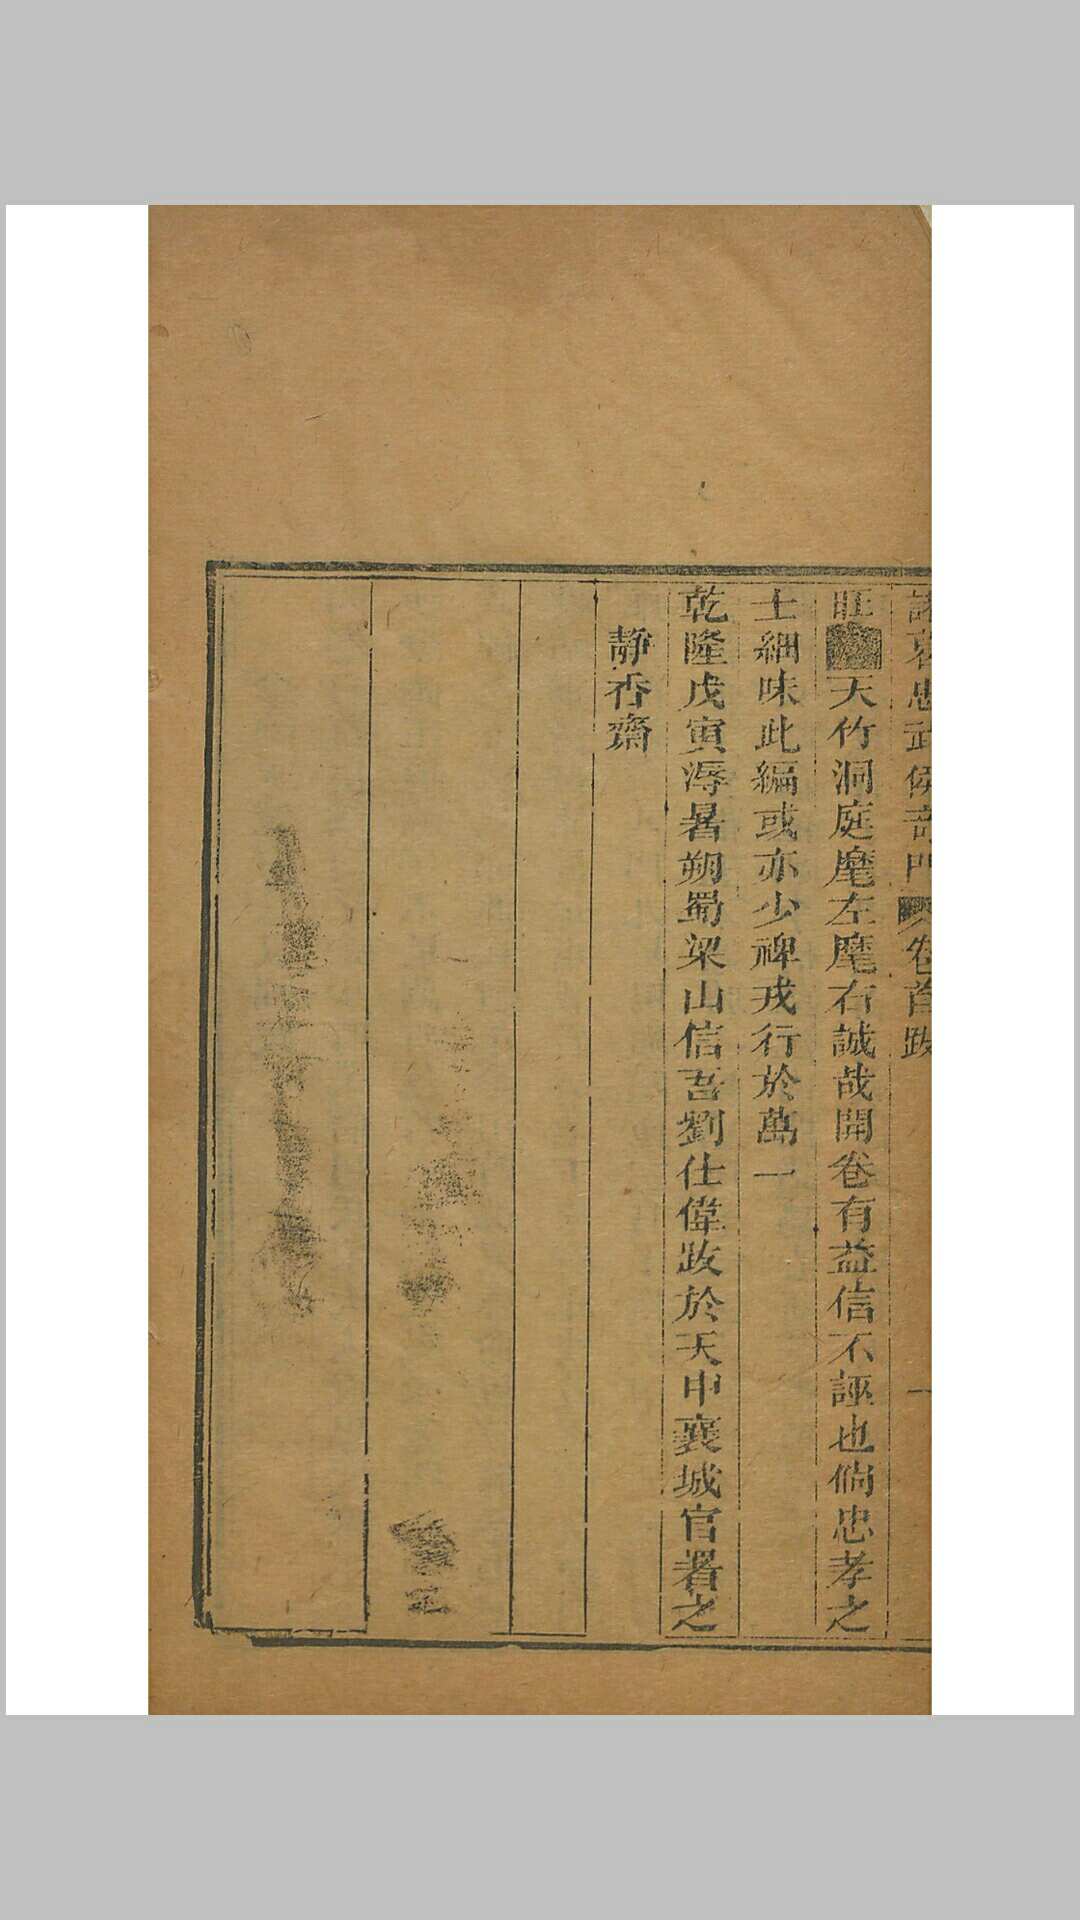 諸葛忠武侯奇門 卷首跋 一
旺 天竹洞庭麾左麾右誠哉開卷有益信不誣也倘忠孝之
士細味此編或亦少裨戎行於萬一
乾隆戊寅溽暑朔蜀梁山信吾劉仕偉跋於天中襄城官署之
靜香齋